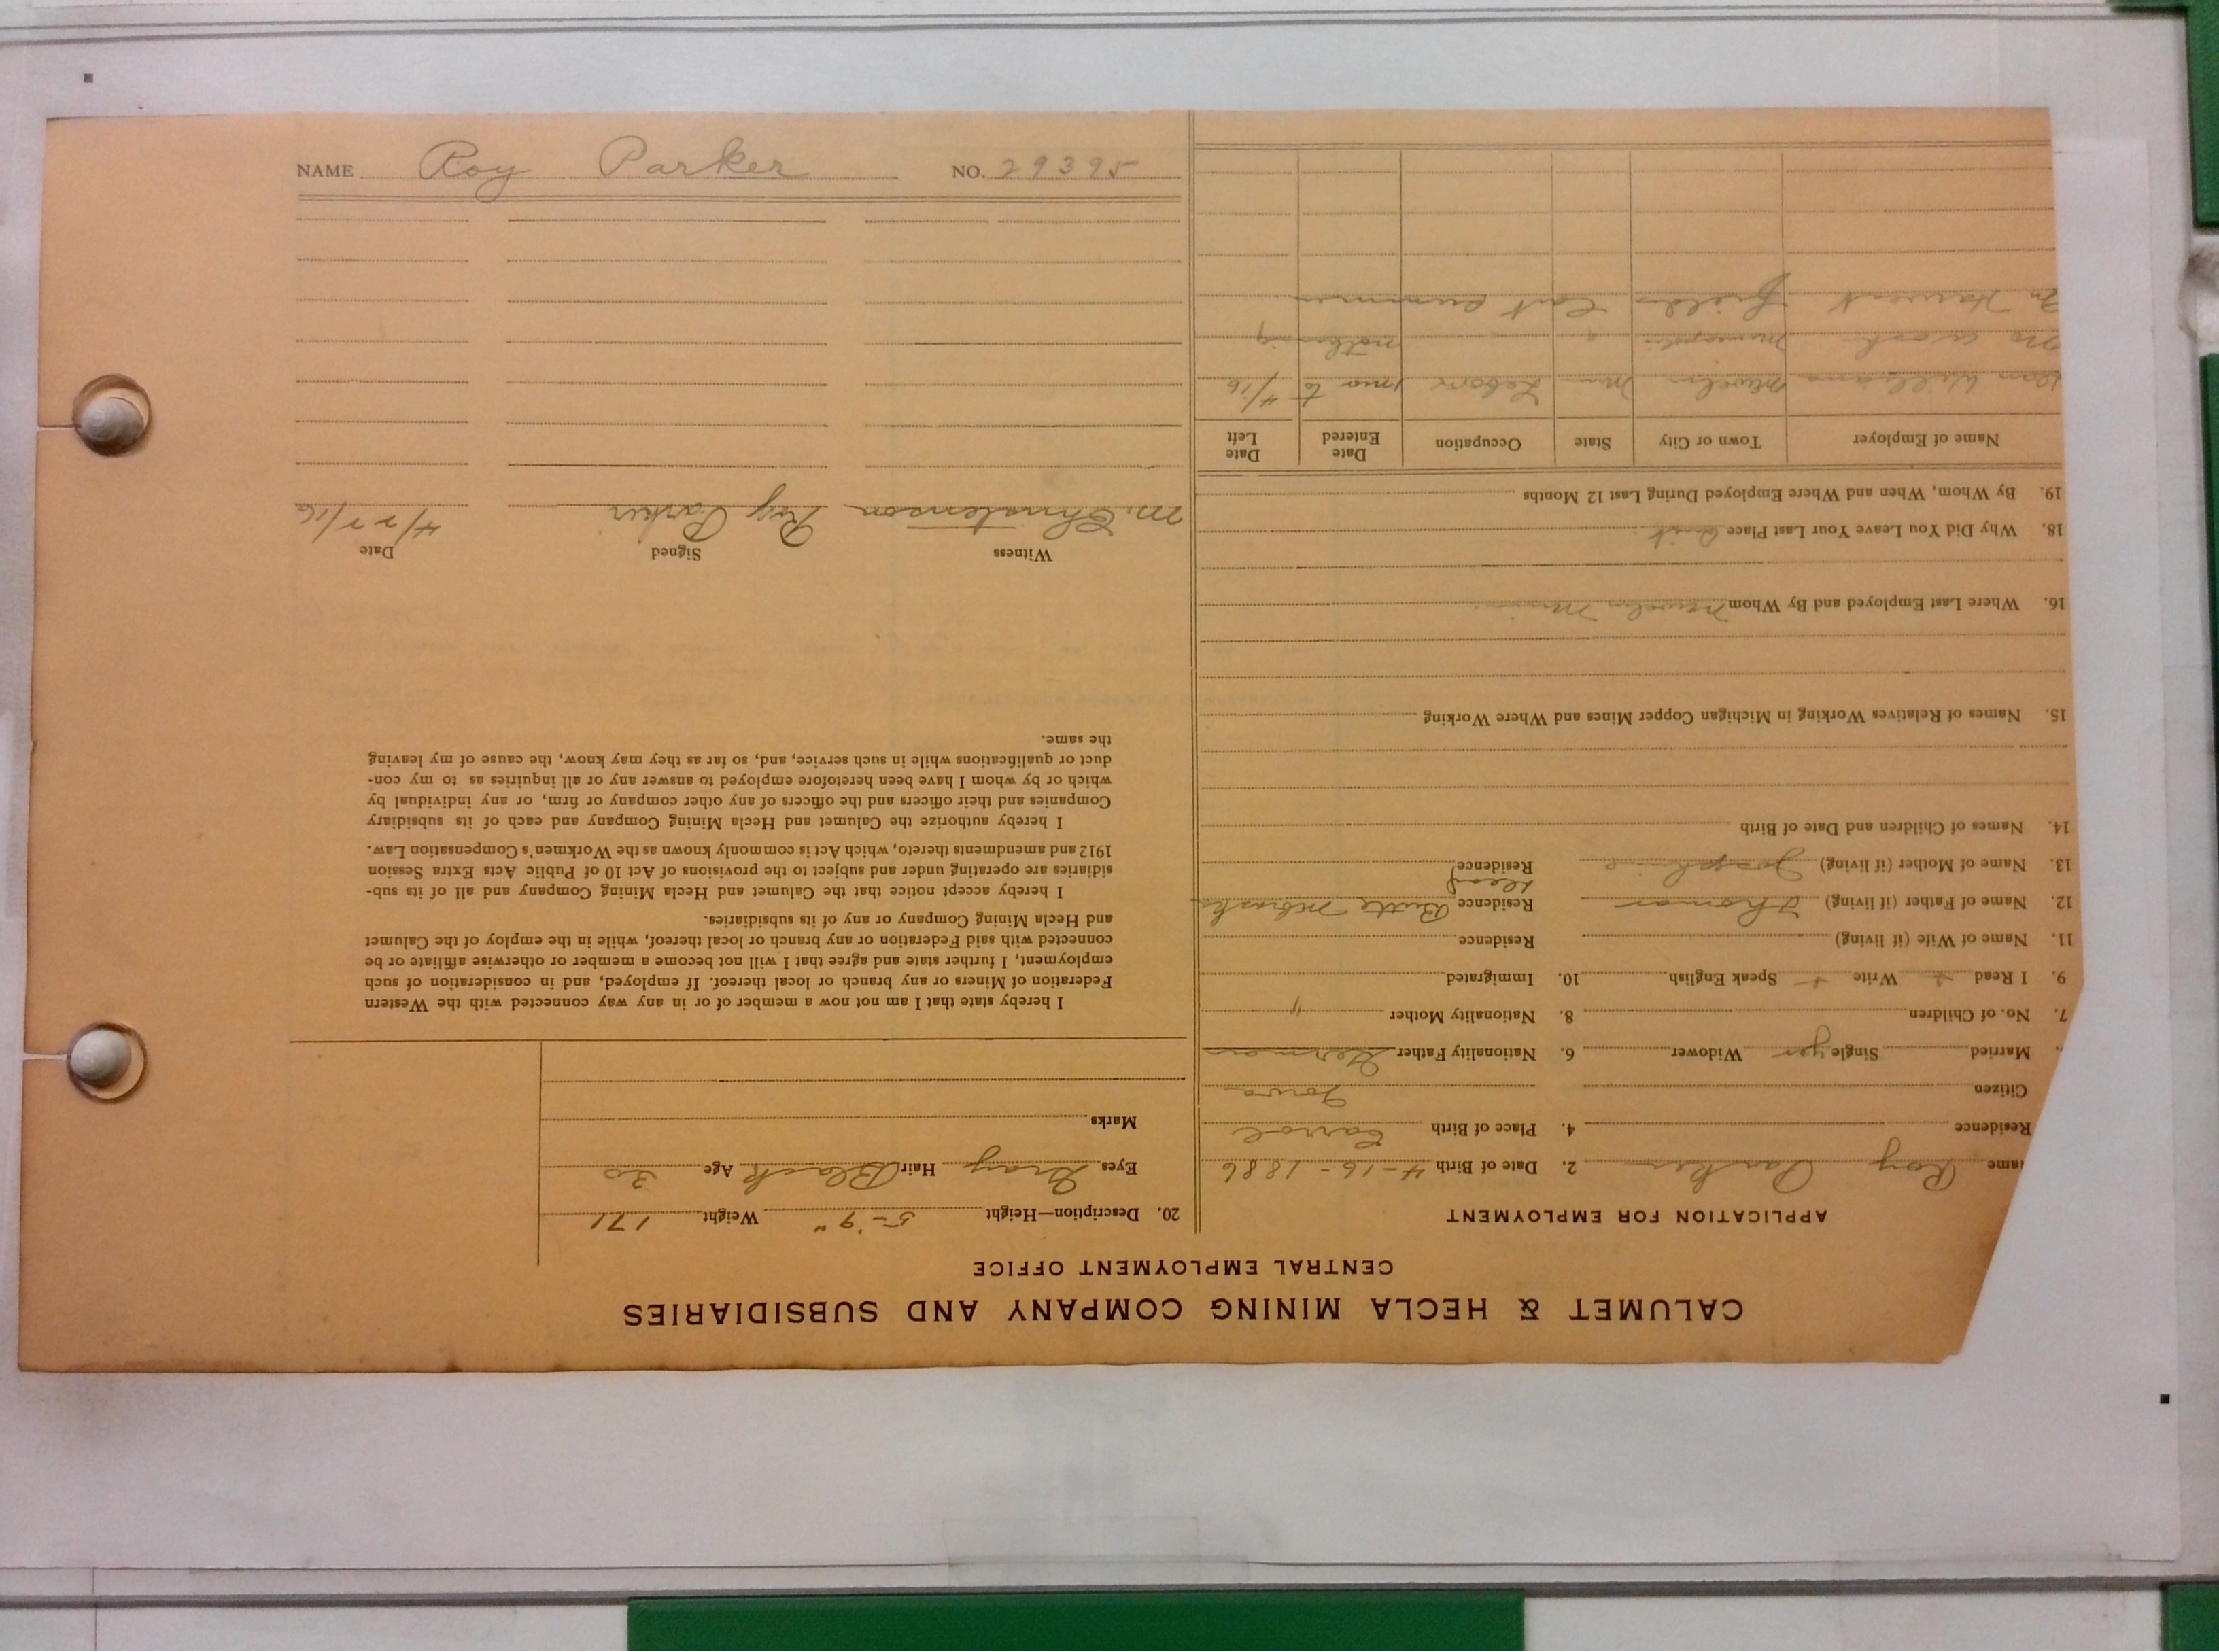 CALUMET & HECLA MINING COMPANY AND SUBSIDIARIES
CENTRAL EMPLOYMENT OFFICE
APPLICATION FOR EMPLOYMENT
ame Roy Parker 2. Date of Birth 4-16-1886
Residence 4. Place of Birth Carrol
Citizen Iowa
Married Single yes Widower 6. Nationality Father German
7. No. of Children 8. Nationality Mother "
9. I Read + Write + Speak English 10. Immigrated
11. Name of Wife (if living) Residence
12. Name of Father (if living) Thomas Residence Butte Nebraska
13. Name of Mother (if living) Josephine Residence Dead
14. Names of Children and Date of Birth
15. Names of Relatives Working in Michigan Copper Mines and Where Working
16. Where Last Employed and By Whom
18. Why Did You Leave Your Last Place Quit
19. By Whom, When and Where Employed During Last 12 Months
Name of Employer Town or City State Occupation Date Entered Date Left
Williams Labor 1 mo to 4/16
No work nothing
In Harvest fields last summer
20. Description—Height 5-9" Weight 171
Eyes Gray Hair Black Age 30
Marks
I hereby state that I am not now a member of or in any way connected with the Western
Federation of Miners or any branch or local thereof. If employed, and in consideration of such
employment, I further state and agree that I will not become a member or otherwise affiliate or be
connected with said Federation or any branch or local thereof, while in the employ of the Calumet
and Hecla Mining Company or any of its subsidiaries.
I hereby accept notice that the Calumet and Hecla Mining Company and all of its sub-
sidiaries are operating under and subject to the provisions of Act 10 of Public Acts Extra Session
1912 and amendments thereto, which Act is commonly known as the Workmen's Compensation Law.
I hereby authorize the Calumet and Hecla Mining Company and each of its subsidiary
Companies and their officers and the officers of any other company or firm, or any individual by
which or by whom I have been heretofore employed to answer any or all inquiries as to my con-
duct or qualifications while in such service, and, so far as they may know, the cause of my leaving
the same.
Witness Signed Date
M. Christenson Roy Parker 4/27/16
NAME Roy Parker NO. 29395